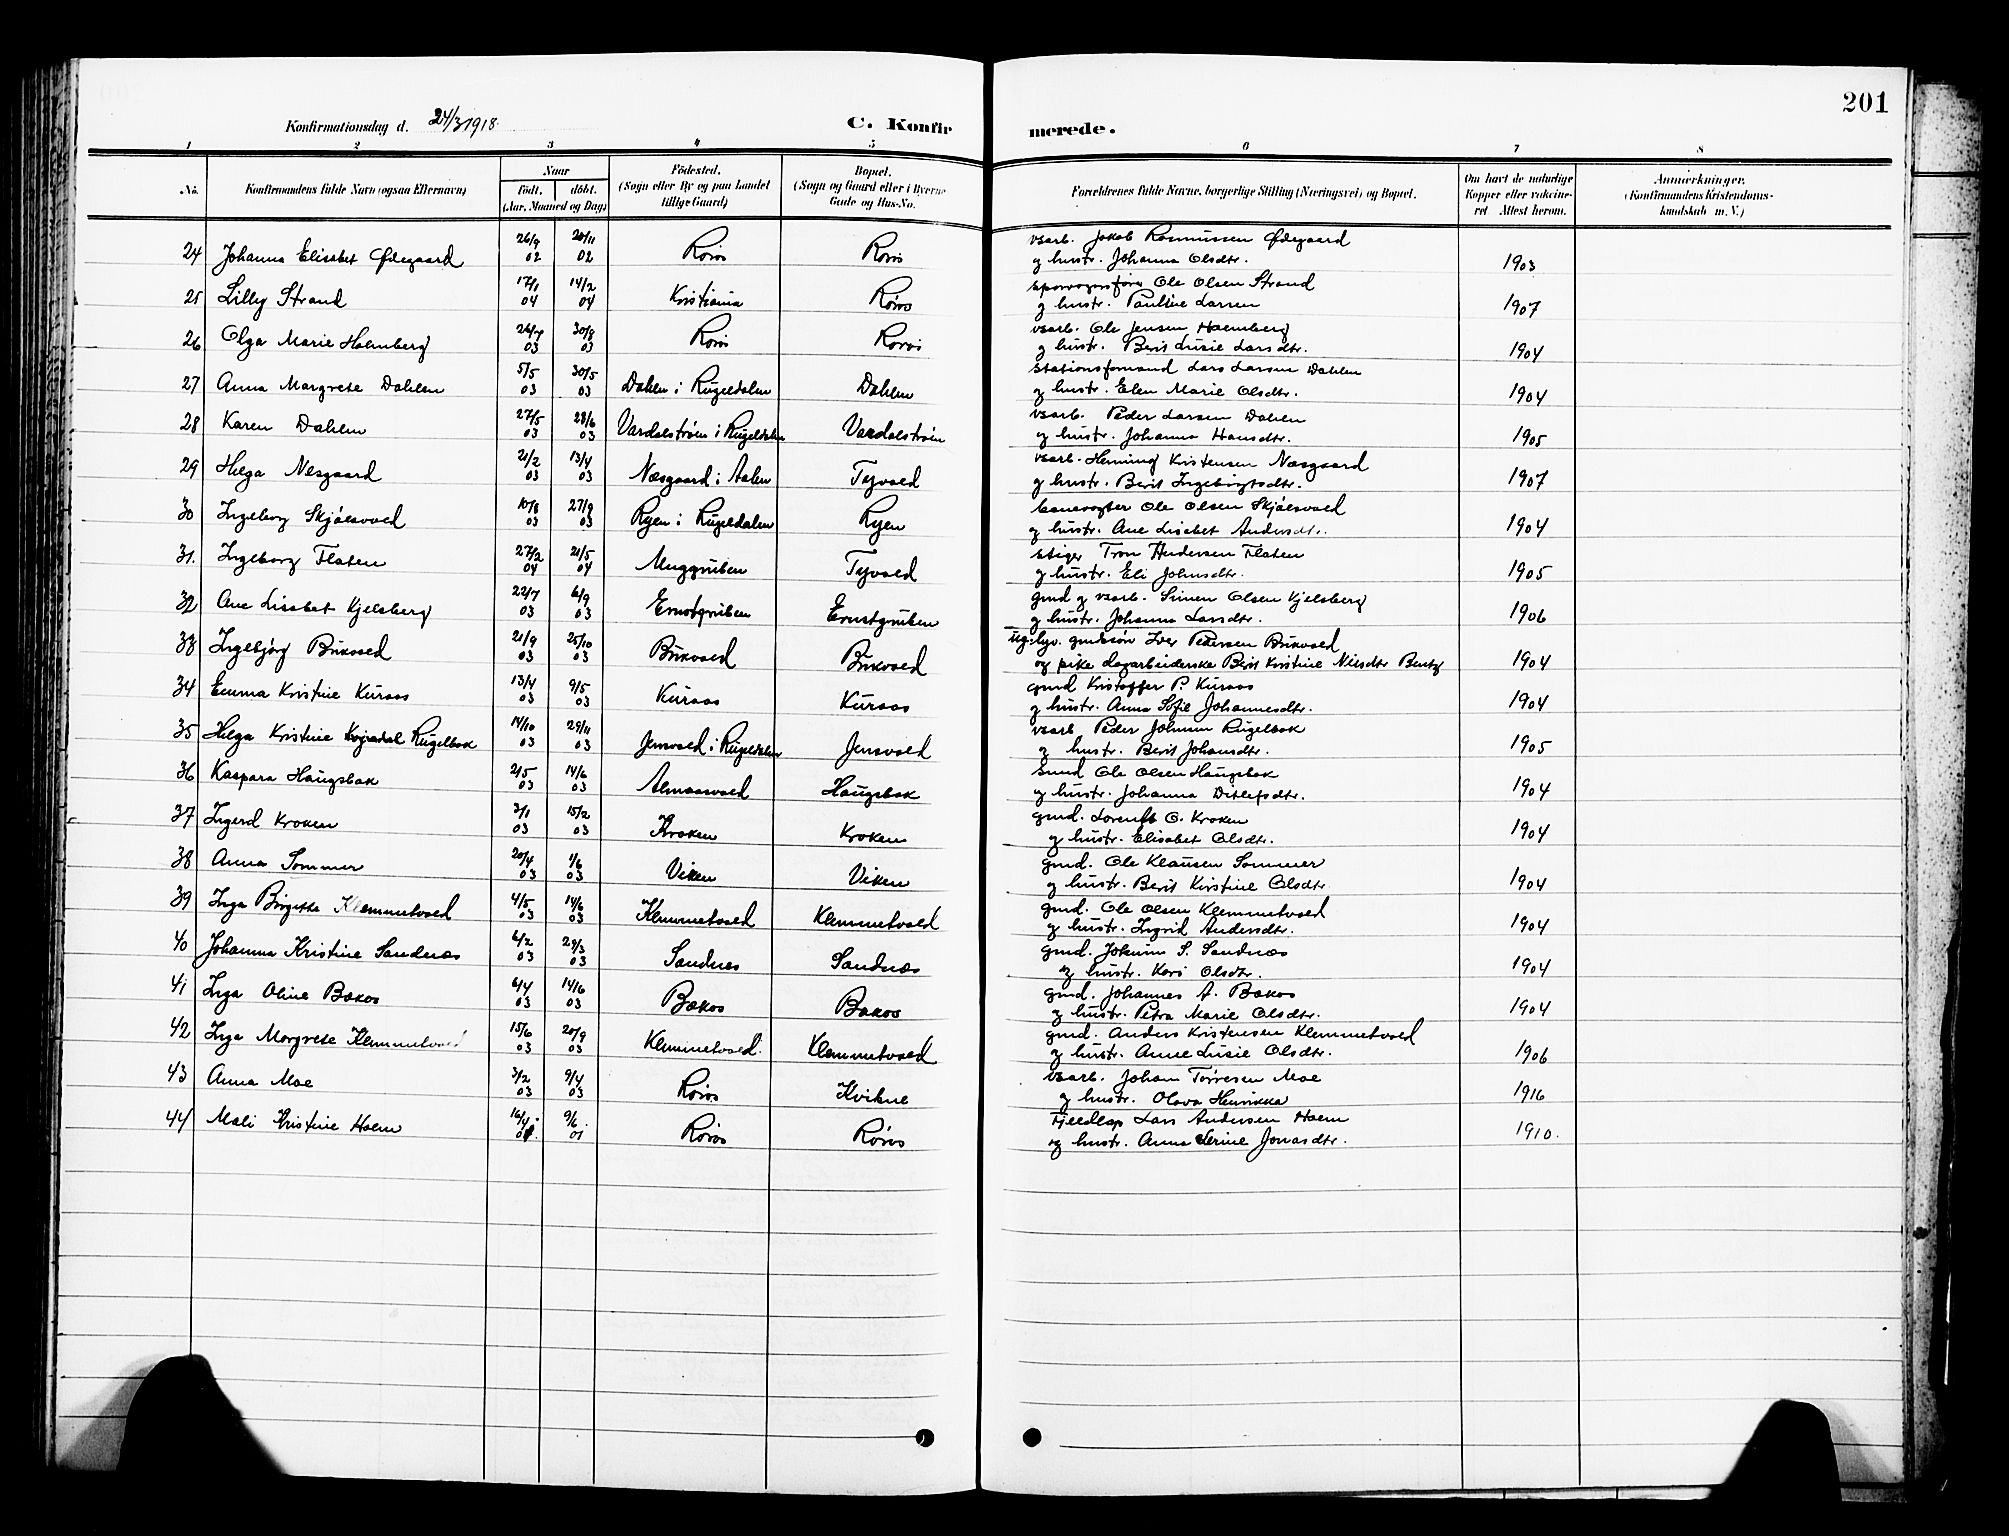 201
Konfirmationsdag d. 24/3 1918. C. Konfirmerede.
1 2 3 4 5 6 7 8
No. Konfirmandens fulde Navn (ogsaa Efternavn) Naar født. døbt. (Aar, Maaned og Dag) Fødested. (Sogn eller By og paa Landet tillige Gaard) Bopæl. (Sogn og Gaard eller i Byerne Gade og Hus-No. Forældrenes fulde Navne, borgerlige Stilling (Næringsvei) og Bopæl. Om havt de naturlige Kopper eller vaccineret Attest herom. Anmærkninger. (Konfirmandens Kristendomskundskab m. V.)
24 Johanna Elisabet Ødegaard 26/9 02 20/11 02 Røros Røros vsarb. Jakob Rasmussen Ødegaard
og hustr. Johanna Olsdtr. 1903
25 Lilly Strand 17/1 04 14/2 04 Kristiania Røros sporvognsfører Ole Olsen Strand
og hustr. Pauline Larsen 1907
26 Olga Marie Holmberg 26/7 03 30/8 03 Røros Røros vsarb. Ole Jensen Holmberg
og hustr. Berit Lusie Larsdtr. 1904
27 Anna Margrete Dahlen 5/5 03 30/5 03 Dahlen i Rugeldalen Dahlen Stationsformand Lars Larsen Dahlen
og hustr. Elen Marie Olsdtr. 1904
28 Karen Dahlen 27/5 03 28/6 03 Vardalstrøen i Rugeldalen Vardalstrøen vsarb. Peder Larsen Dahlen
og hustr. Johanna Hansdtr. 1905
29 Helga Nesgaard 21/2 03 13/4 03 Næsgaard i Aalen Tyvold vsarb. Henning Kristensen Næsgaard
og hustr. Berit Ingebrigtsdtr. 1907
30 Ingeborg Skjølsvold 10/8 03 27/9 03 Ryen i Rugeldalen Ryen banevogter Ole Olsen Skjølsvold
og hustr. Ane Lisabet Andersdtr. 1904
31. Ingeborg Flaten 27/2 04 21/5 04 Muggruben Tyvold stiger Tron Andersen Flaten
og hustr. Eli Johnsdtr. 1905
32 Ane Lisabet Kjelsberg 22/7 03 6/9 03 Ernstgruben Ernstgruben gmd og vsarb. Simen Olsen Kjelsberg
og hustr. Johanna Larsdtr. 1906
33 Ingebjørg Bukvold 21/9 03 25/10 03 Bukvold Bukvold ug. hjv. gmdssøn Iver Pedersen Bukvold
og pike dagarbeiderske Berit Kristine Nilsdtr 1904
34 Emma Kristine Kuraas 13/4 03 9/5 03 Kuraas Kuraas gmd Kristoffer P. Kuraas
og hustr. Anna Sofie Johannesdtr. 1904
35 Helga Kristine Rugelbak 14/10 03 29/11 03 Jensvold i Rugeldalen Jensvold vsarb Peder Johnsen Rugelbak
og hustr. Berit Johansdtr. 1905
36 Kaspara Haugsbak 2/5 03 14/6 03 Almaasvold Haugsbak gmd Ole Olsen Haugsbak
og hustr. Johanna Ditlefsdtr. 1904
37 Ingerd Kroken 3/1 03 15/2 03 Kroken Kroken gmd. Lorents O. Kroken
og hustr. Elisabet Olsdtr. 1904
38 Anna Sommer 20/4 03 1/6 03 Viken Viken gmd. Ole Klausen Sommer
og hustr. Berit Kirstine Olsdtr 1904
39 Inga Birgitte Klemmetvold 4/5 03 14/6 03 Klemmetvold Klemmetvold gmd. Ole Olsen Klemmetvold
og hustr. Ingrid Andersdtr. 1904
40 Johanna Kristine Sandnæs 6/2 03 29/3 03 Sandnæs Sandnæs gmd. Jokum S. Sandnæs
og hustr. Kari Olsdtr. 1904
41 Inga Oline Bakos 6/4 03 14/6 03 Bakos Bakos gmd. Johannes A. Bakos
og hustr. Petra Marie Olsdtr. 1904
42 Inga Margrete Klemmetvold 15/6 03 20/9 03 Klemmetvold. Klemmetvold gmd. Anders Kristensen Klemmetvold
og hustr. Anne Lusie Olsdtr. 1906
43 Anna Moe 3/2 03 9/4 03 Røros Kvikne vsarb. Johan Tørresen Moe
og hustr. Olava Henrikka 1916
44 Mali Kristine Holm 16/4 01. 9/6 01 Røros Røros Fjeldlap Lars Andersen Holm
og hustr. Anna Serine Jonasdtr. 1910.